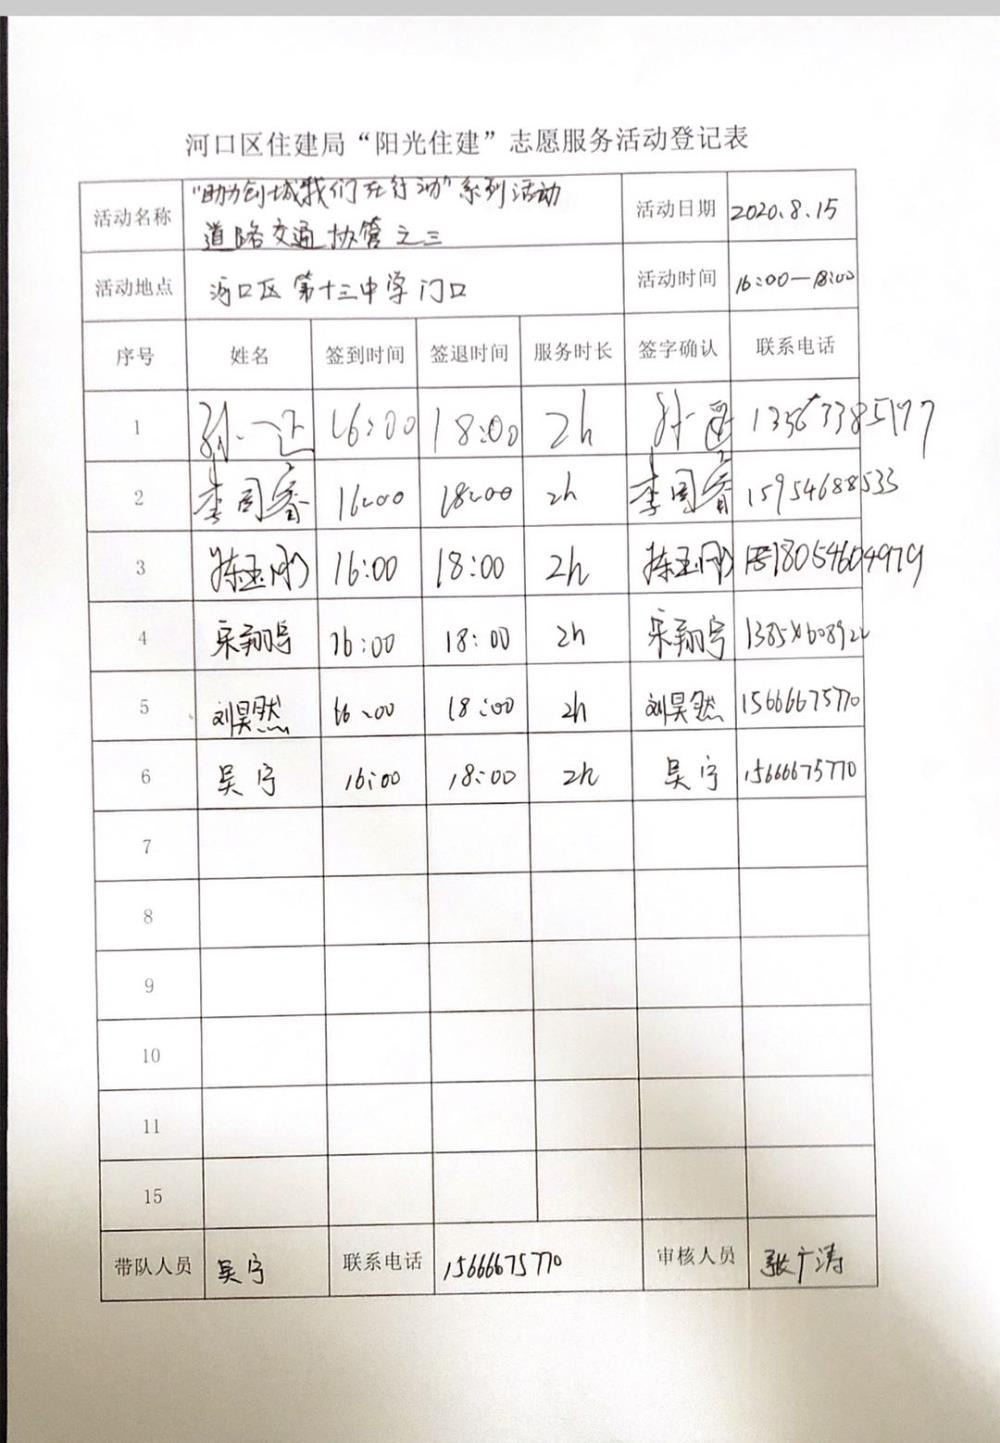 河口区住建局“阳光住建”志愿服务活动登记表
活动名称 “助力创城我们在行动”系列活动 活动日期 2020.8.15
道路交通协管之三
活动地点 河口区第十三中学门口 活动时间 16:00—18:00
序号 姓名 签到时间 签退时间 服务时长 签字确认 联系电话
1 16:00 18:00 2h
2 李同睿 16:00 18:00 2h 李同睿 15954688533
3 陈玉刚 16:00 18:00 2h 陈玉刚 18054604979
4 宋翔宇 16:00 18:00 2h 宋翔宇
5 刘昊然 16:00 18:00 2h 刘昊然 15666675770
6 吴宁 16:00 18:00 2h 吴宁 15666675770
7
8
9
10
11
15
带队人员 吴宁 联系电话 15666675770 审核人员 张广涛